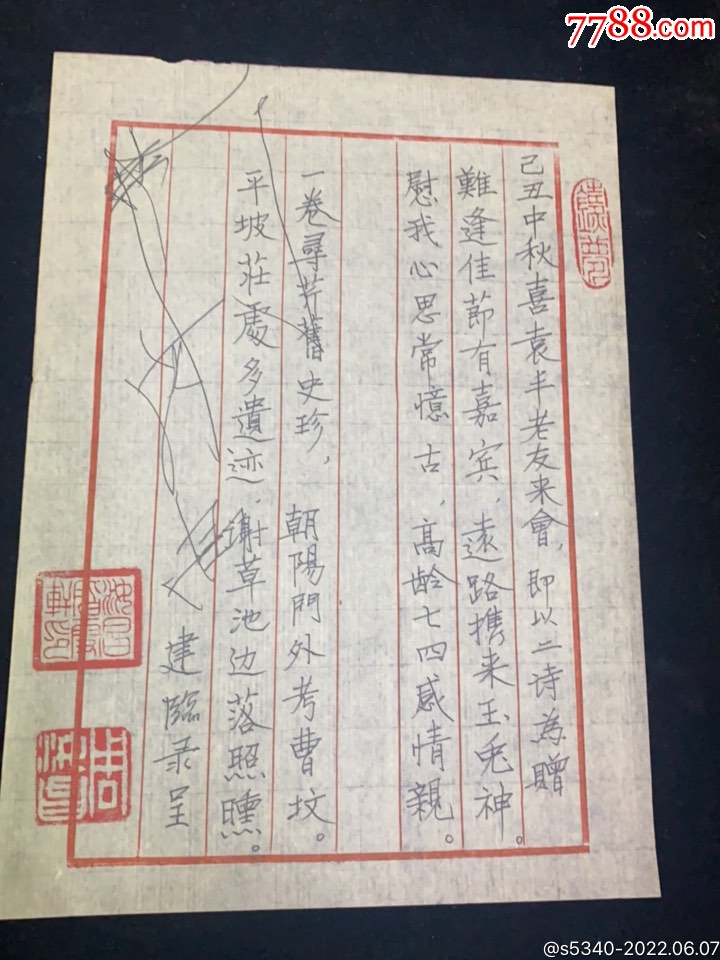 7788.com
己丑中秋喜袁半老友来會，即以二诗為贈
難逢佳節有嘉宾，遠路携来玉兎神。
慰我心思常憶古，高龄七四感情親。
一卷尋芹舊史珍，朝陽門外考曹坟。
平坡莊處多遺迹，謝草池边落照曛。
建臨录呈
周
@s5340-2022.06.07